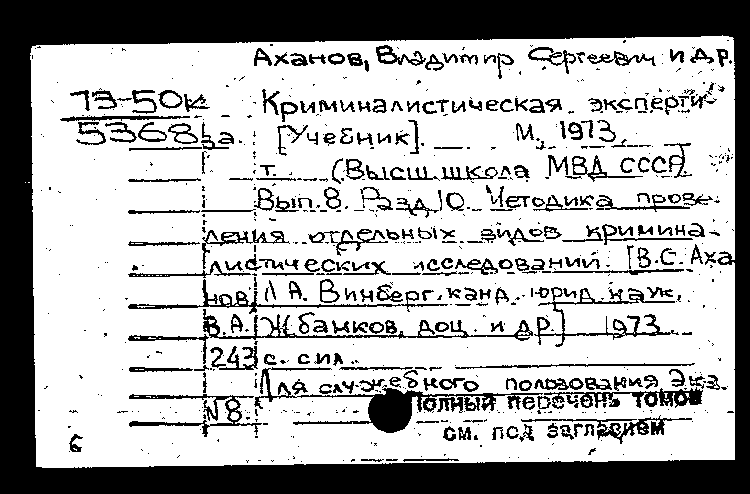 Аханов, Владимир Сергеевич и др.
73-50к Криминалистическая эксперти-
5368 за. [Учебник]. М., 1973.
т. (Высш. школа МВД СССР)
Вып. 8. Разд. 10. Методика прове-
дения отдельных видов кримина-
листических исследований. [В.С. Аха
нов, А. Винберг, канд. юрид. наук,
В.А. Жбанков, доц. и др.] 1973.
243 с. с ил.
Для служебного пользования Экз.
№8. Полный перечень томов
см. под заглавием
6